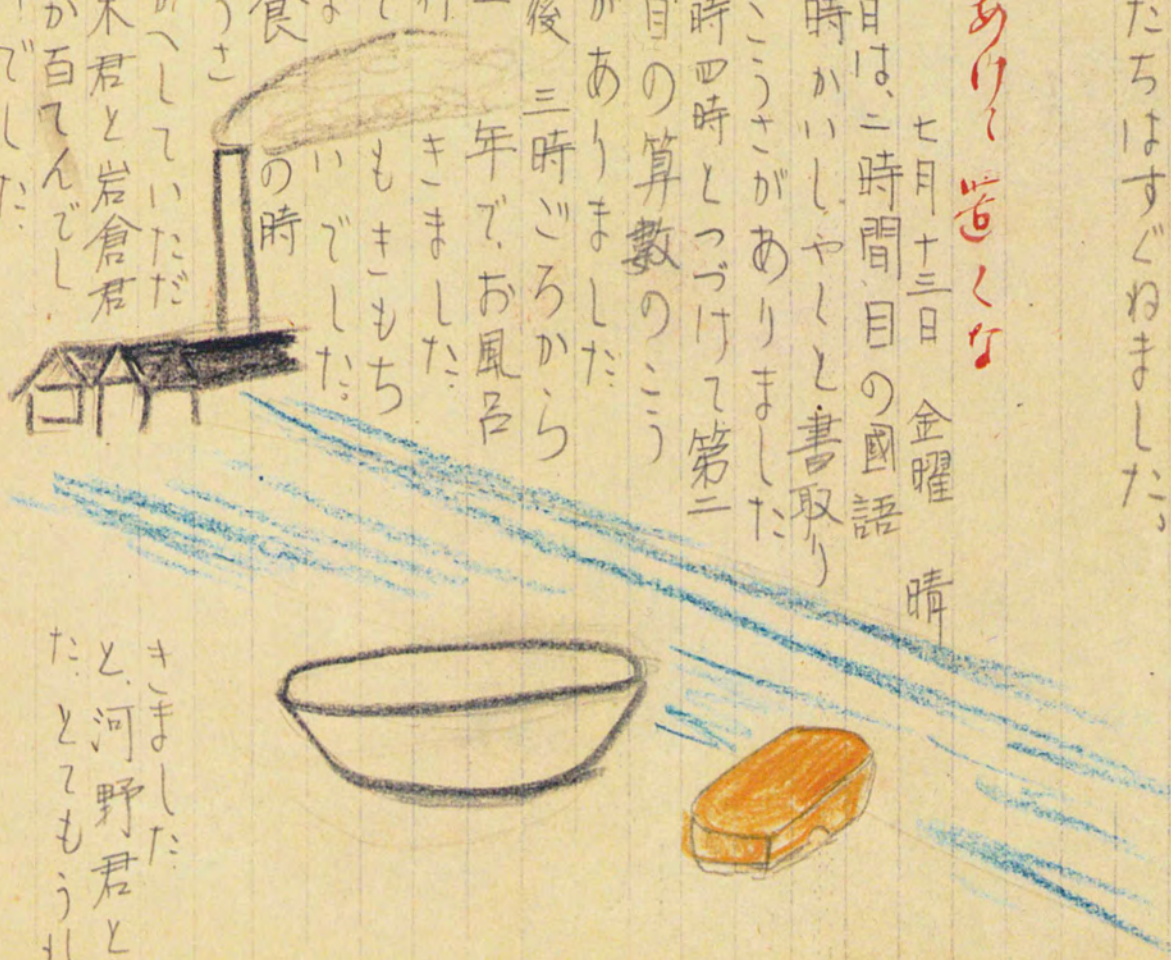 たちはすぐねました。
あけ、苦くな
七月十三日 金曜 晴
日は、二時間目の國語
時かいしやくと書取り
こうさがありました
時四時とつづけて第二
目の算數のこう
がありました。
後 三時ごろから
年で、お風呂
きました。
もきもち
いでした。
食 の時
うさ
へしていただきました
木君と岩倉君と、河野君と
か百てんでした。とてもうれ
でした。